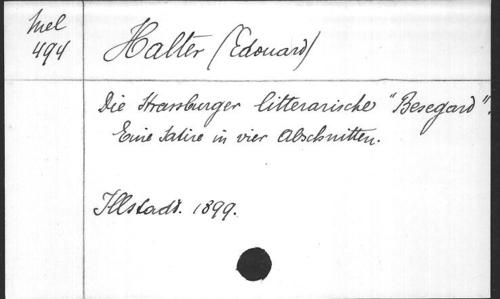 Mel
494
Halter (Edouard)
Die Strassburger litterarische "Besegard".
Eine Satire in vier Abschnitten.
Illstadt. 1899.